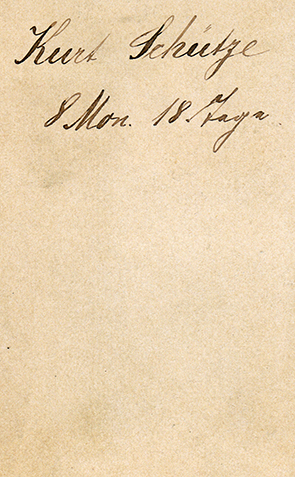 Kurt Schütze
8 Mon. 18 Tage